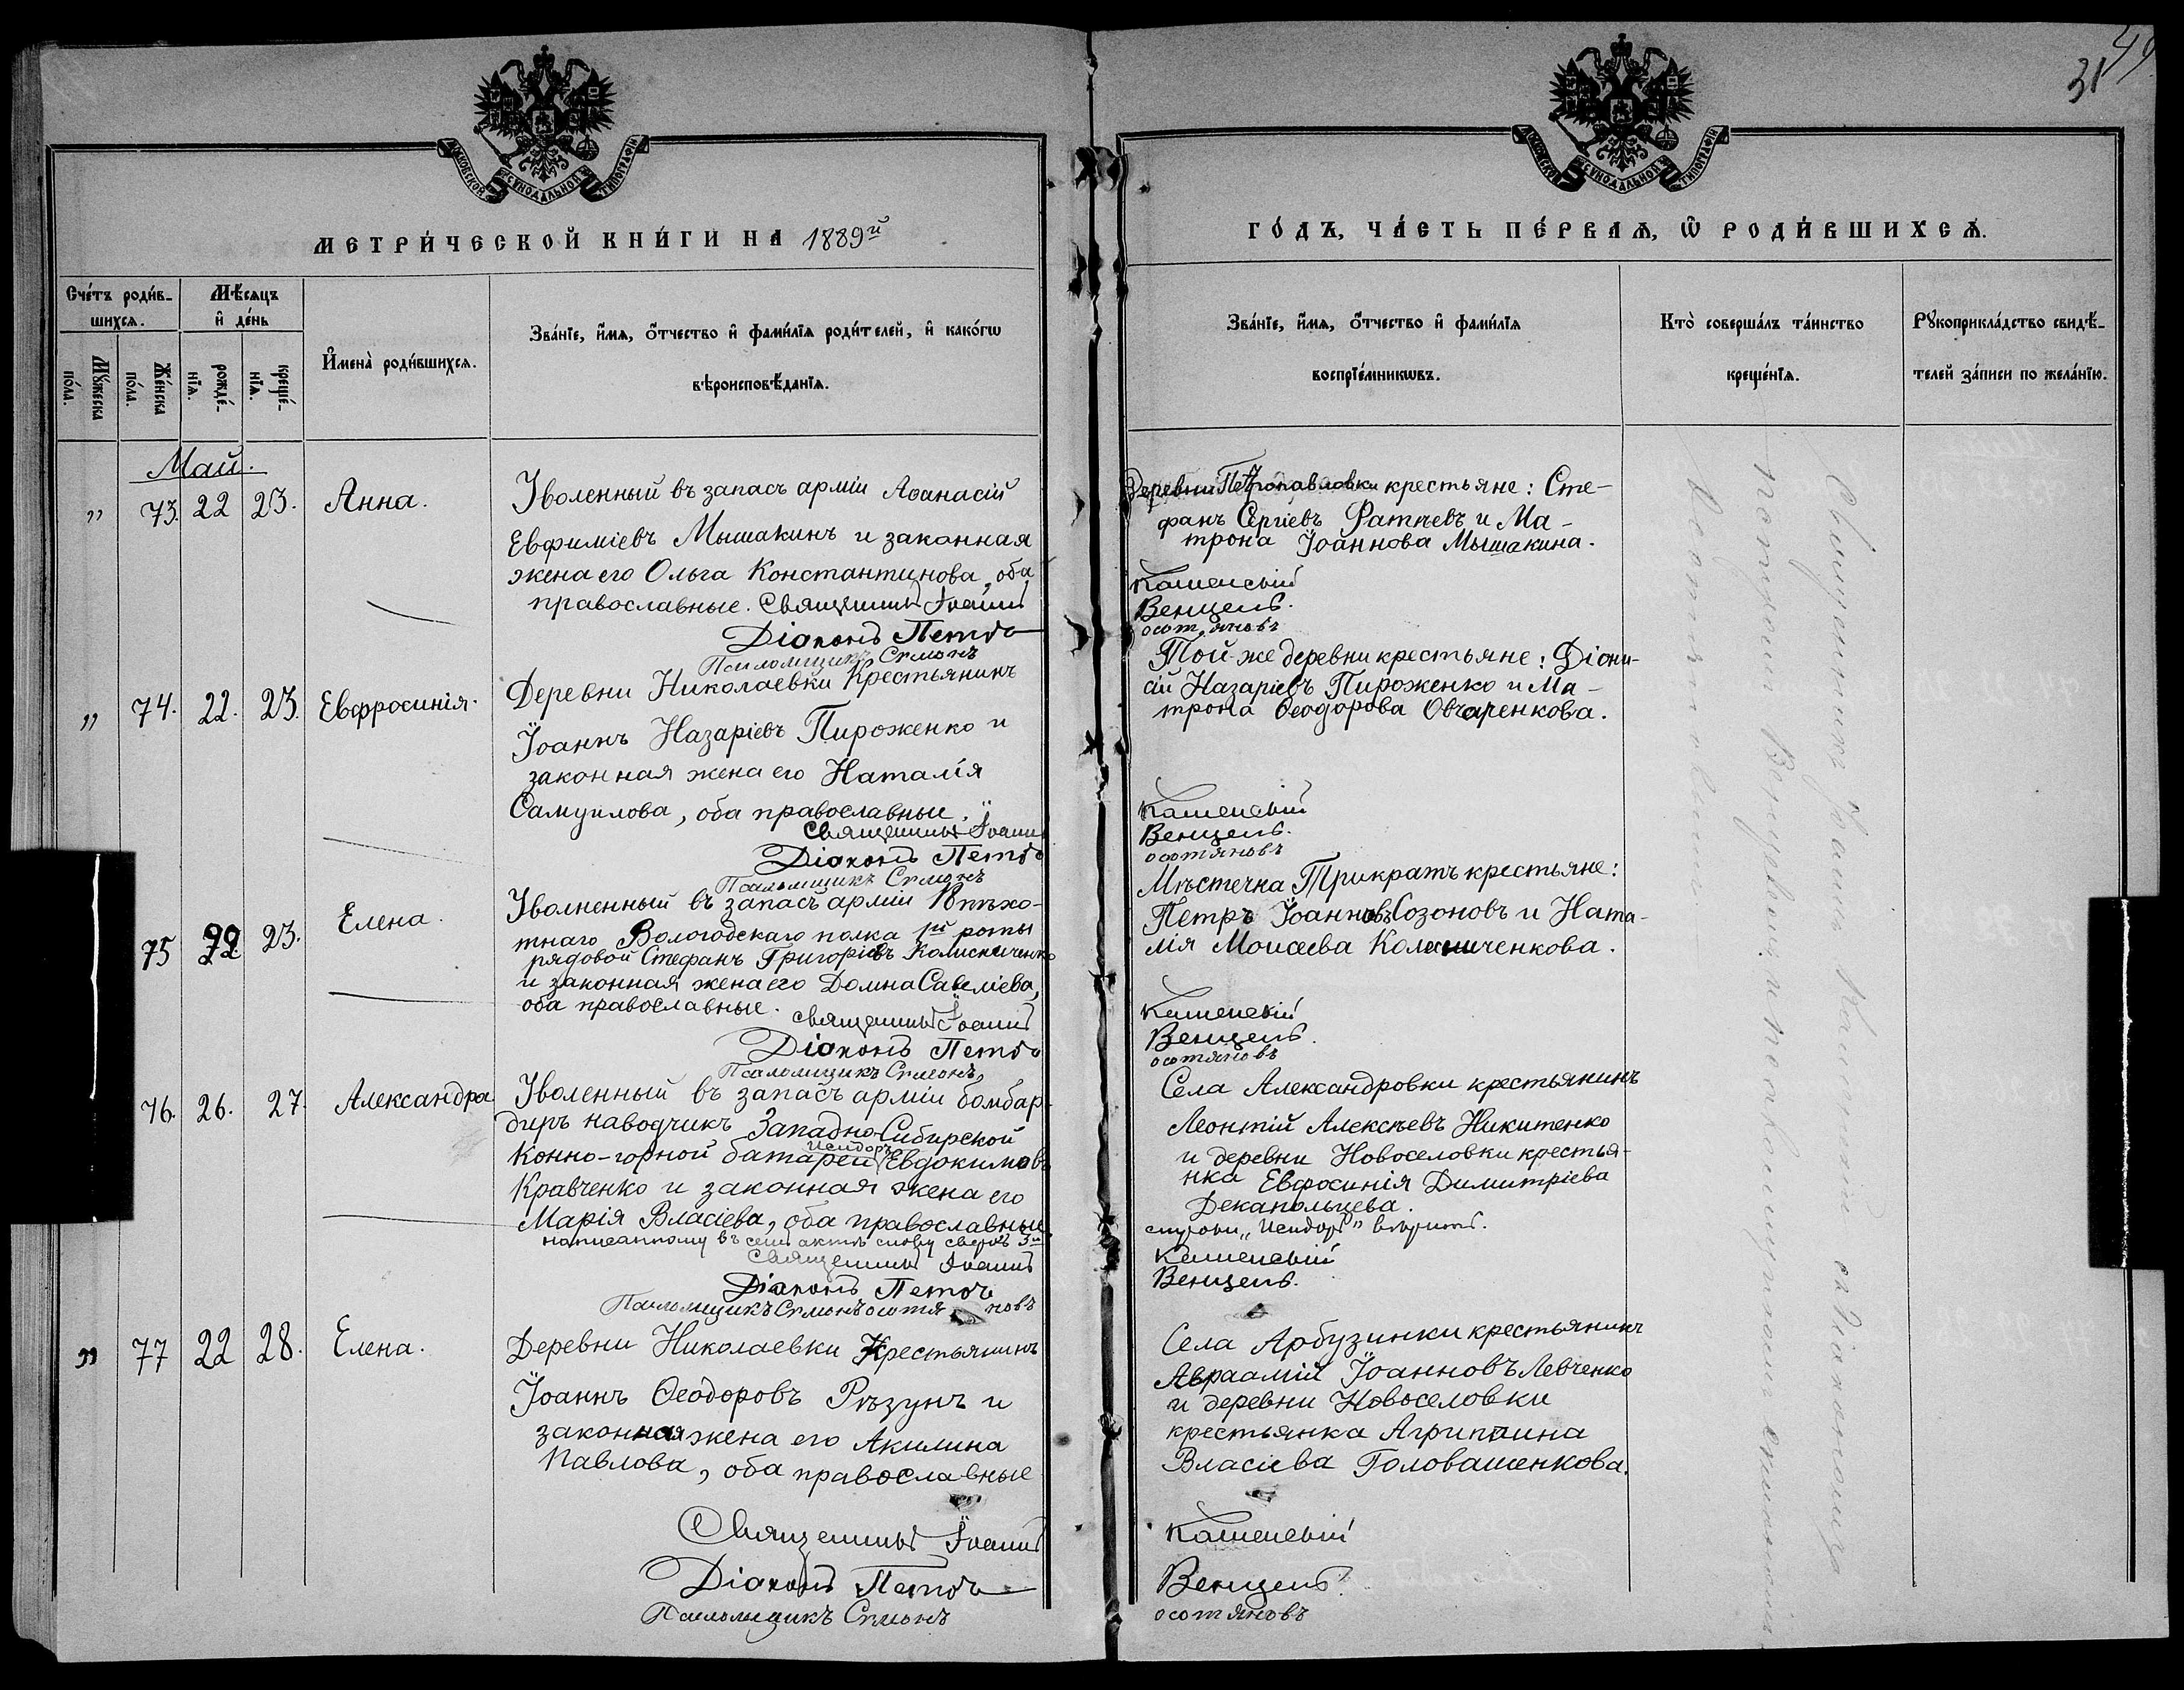 31
49
МОСКОВСКОЙ СѴНОДАЛЬНОЙ ТИПОГРАФІИ
МОСКОВСКОЙ СѴНОДАЛЬНОЙ ТИПОГРАФІИ
МЕТРИ́ЧЕСКОЙ КНИ́ГИ НА 1889й
ГО́ДЪ, ЧА́СТЬ ПЕ́РВАѦ, Ѡ РОДИ́ВШИХСѦ.
Сче́тъ роди́в-
шихсѧ.
Мѣ́сѧцъ
и҆ де́нь
Мꙋ́жеска по́ла.
Же́нска по́ла.
рожде́-нїѧ.
креще́-нїѧ.
И҆мена̀ роди́вшихсѧ.
Зва́нїе, и҆́мѧ, ѻ҆́тчество и҆ фами́лїѧ роди́телей, и҆ како́гѡ
вѣроисповѣ́данїѧ.
Зва́нїе, и҆́мѧ, ѻ҆́тчество и҆ фами́лїѧ
воспрїе́мникѡвъ.
Кто̀ соверша́лъ та́инство
креще́нїѧ.
Рꙋкоприкла́дство свидѣ́-
телей за́писи по жела́нїю.
Май.
" 73. 22 23. Анна.
Уволенный въ запасъ арміи Аѳанасій
Евфиміевъ Мышакинъ и законная
жена его Ольга Константинова, оба
православные. Священникъ Іоаннъ
Діаконъ Петръ
Псаломщикъ Симонъ
Деревни Петропавловки крестьяне: Сте-
фанъ Сергіевъ Ратчевъ и Ма-
трона Іоаннова Мышакина.
Каменскій
Венцевъ.
осотяновъ
" 74. 22. 23. Евфросинія.
Деревни Николаевки Крестьянинъ
Іоаннъ Назаріевъ Пироженко и
законная жена его Наталія
Самуилова, оба православные.
Священникъ Іоаннъ
Діаконъ Петръ
Псаломщикъ Симонъ
Той-же деревни крестьяне: Діони-
сій Назаріевъ Пироженко и Ма-
трона Ѳеодорова Овчаренкова.
Каменскій
Венцевъ.
осотяновъ
75 22 23. Елена.
Уволненный въ запасъ арміи 18 пѣхо-
тнаго Вологодскаго полка 1й роты
рядовой Стефанъ Григоріевъ Колисниченко
и законная жена его Домна Савеліева,
оба православные.
Священникъ Іоаннъ
Діаконъ Петръ
Псаломщикъ Симонъ
Мѣстечка Трикратъ крестьяне:
Петръ Іоанновъ Созоновъ и Ната-
лія Моисеева Колесниченкова.
Каменскій
Венцевъ.
осотяновъ
76. 26. 27. Александра
Уволенный въ запасъ арміи бомбар-
диръ наводчикъ Западно-Сибирской
Исидоръ
Конно-горной батареи Евдокимовъ
Кравченко и законная жена его
Марія Власіева, оба православные
написанному въ семъ актѣ слову сверхъ 3й
Священникъ Іоаннъ
Діаконъ Петръ
Псаломщикъ Симонъ осотяновъ
Села Александровки крестьянинъ
Леонтій Алексѣевъ Никитенко
и деревни Новоселовки крестья-
нка Евфросинія Димитріева
Деканольцева.
строки "Исидоръ" вѣрить.
Каменскій
Венцевъ.
" 77 22 28. Елена.
Деревни Николаевки Крестьянинъ
Іоаннъ Ѳеодоровъ Рѣзунъ и
законная жена его Акилина
Павлова, оба православные
Священникъ Іоаннъ
Діаконъ Петръ
Псаломщикъ Симонъ
Села Арбузинки крестьянинъ
Авраамій Іоанновъ Левченко
и деревни Новоселовки
крестьянка Агриппина
Власіева Головашенкова.
Каменскій
Венцевъ.
осотяновъ
Священникъ Іоаннъ Каменскій съ діакономъ
Петромъ Венцевымъ и псаломщикомъ Симономъ